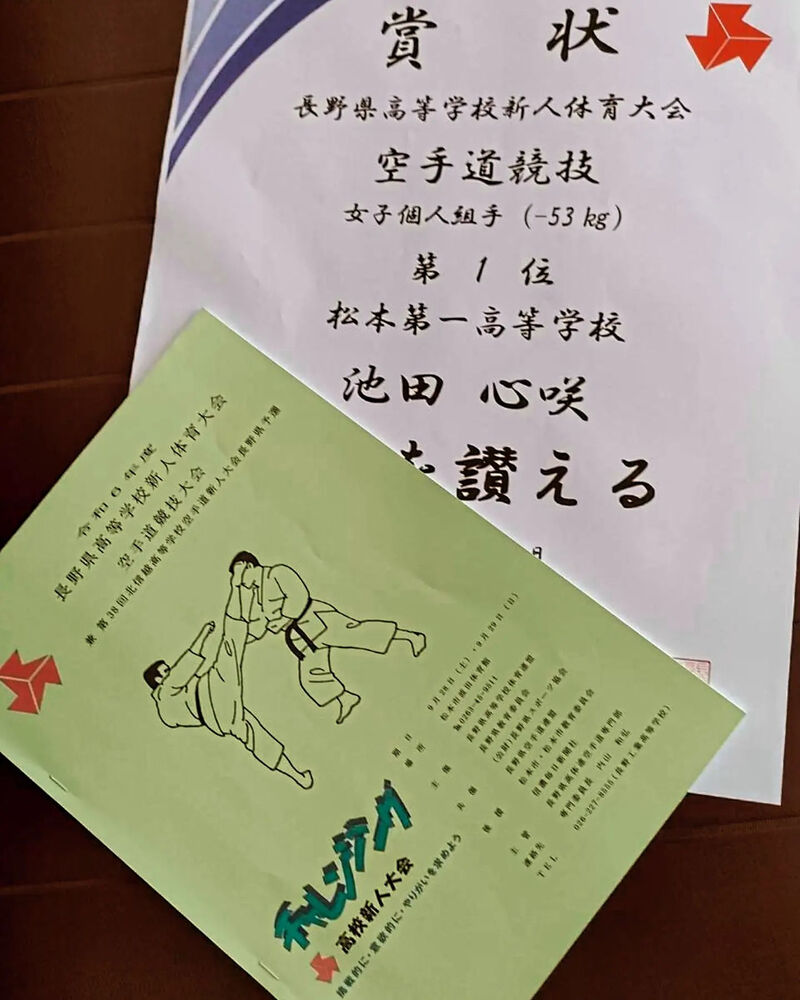 賞 状
長野県高等学校新人体育大会
空手道競技
女子個人組手 (-53 kg)
第 1 位
松本第一高等学校
池田 心咲
を讃える
日
令和6年度
長野県高等学校新人体育大会
空手道競技大会
兼 第38回北信越高等学校空手道新人大会長野県予選
期日 9月28日(土)・9月29日(日)
場所
℡0263-45-9511
主催 長野県高等学校体育連盟
長野県教育委員会
(公財)長野県スポーツ協会
共催 長野県空手道連盟
後援 松本市・松本市教育委員会
信濃毎日新聞社
主管 長野県高体連空手道専門部
連絡先 専門委員長 内山 和弘
TEL 026-227-8555(長野工業高等学校)
チャレンジング
高校新人大会
挑戦的に・意欲的に・やりがいを求めよう